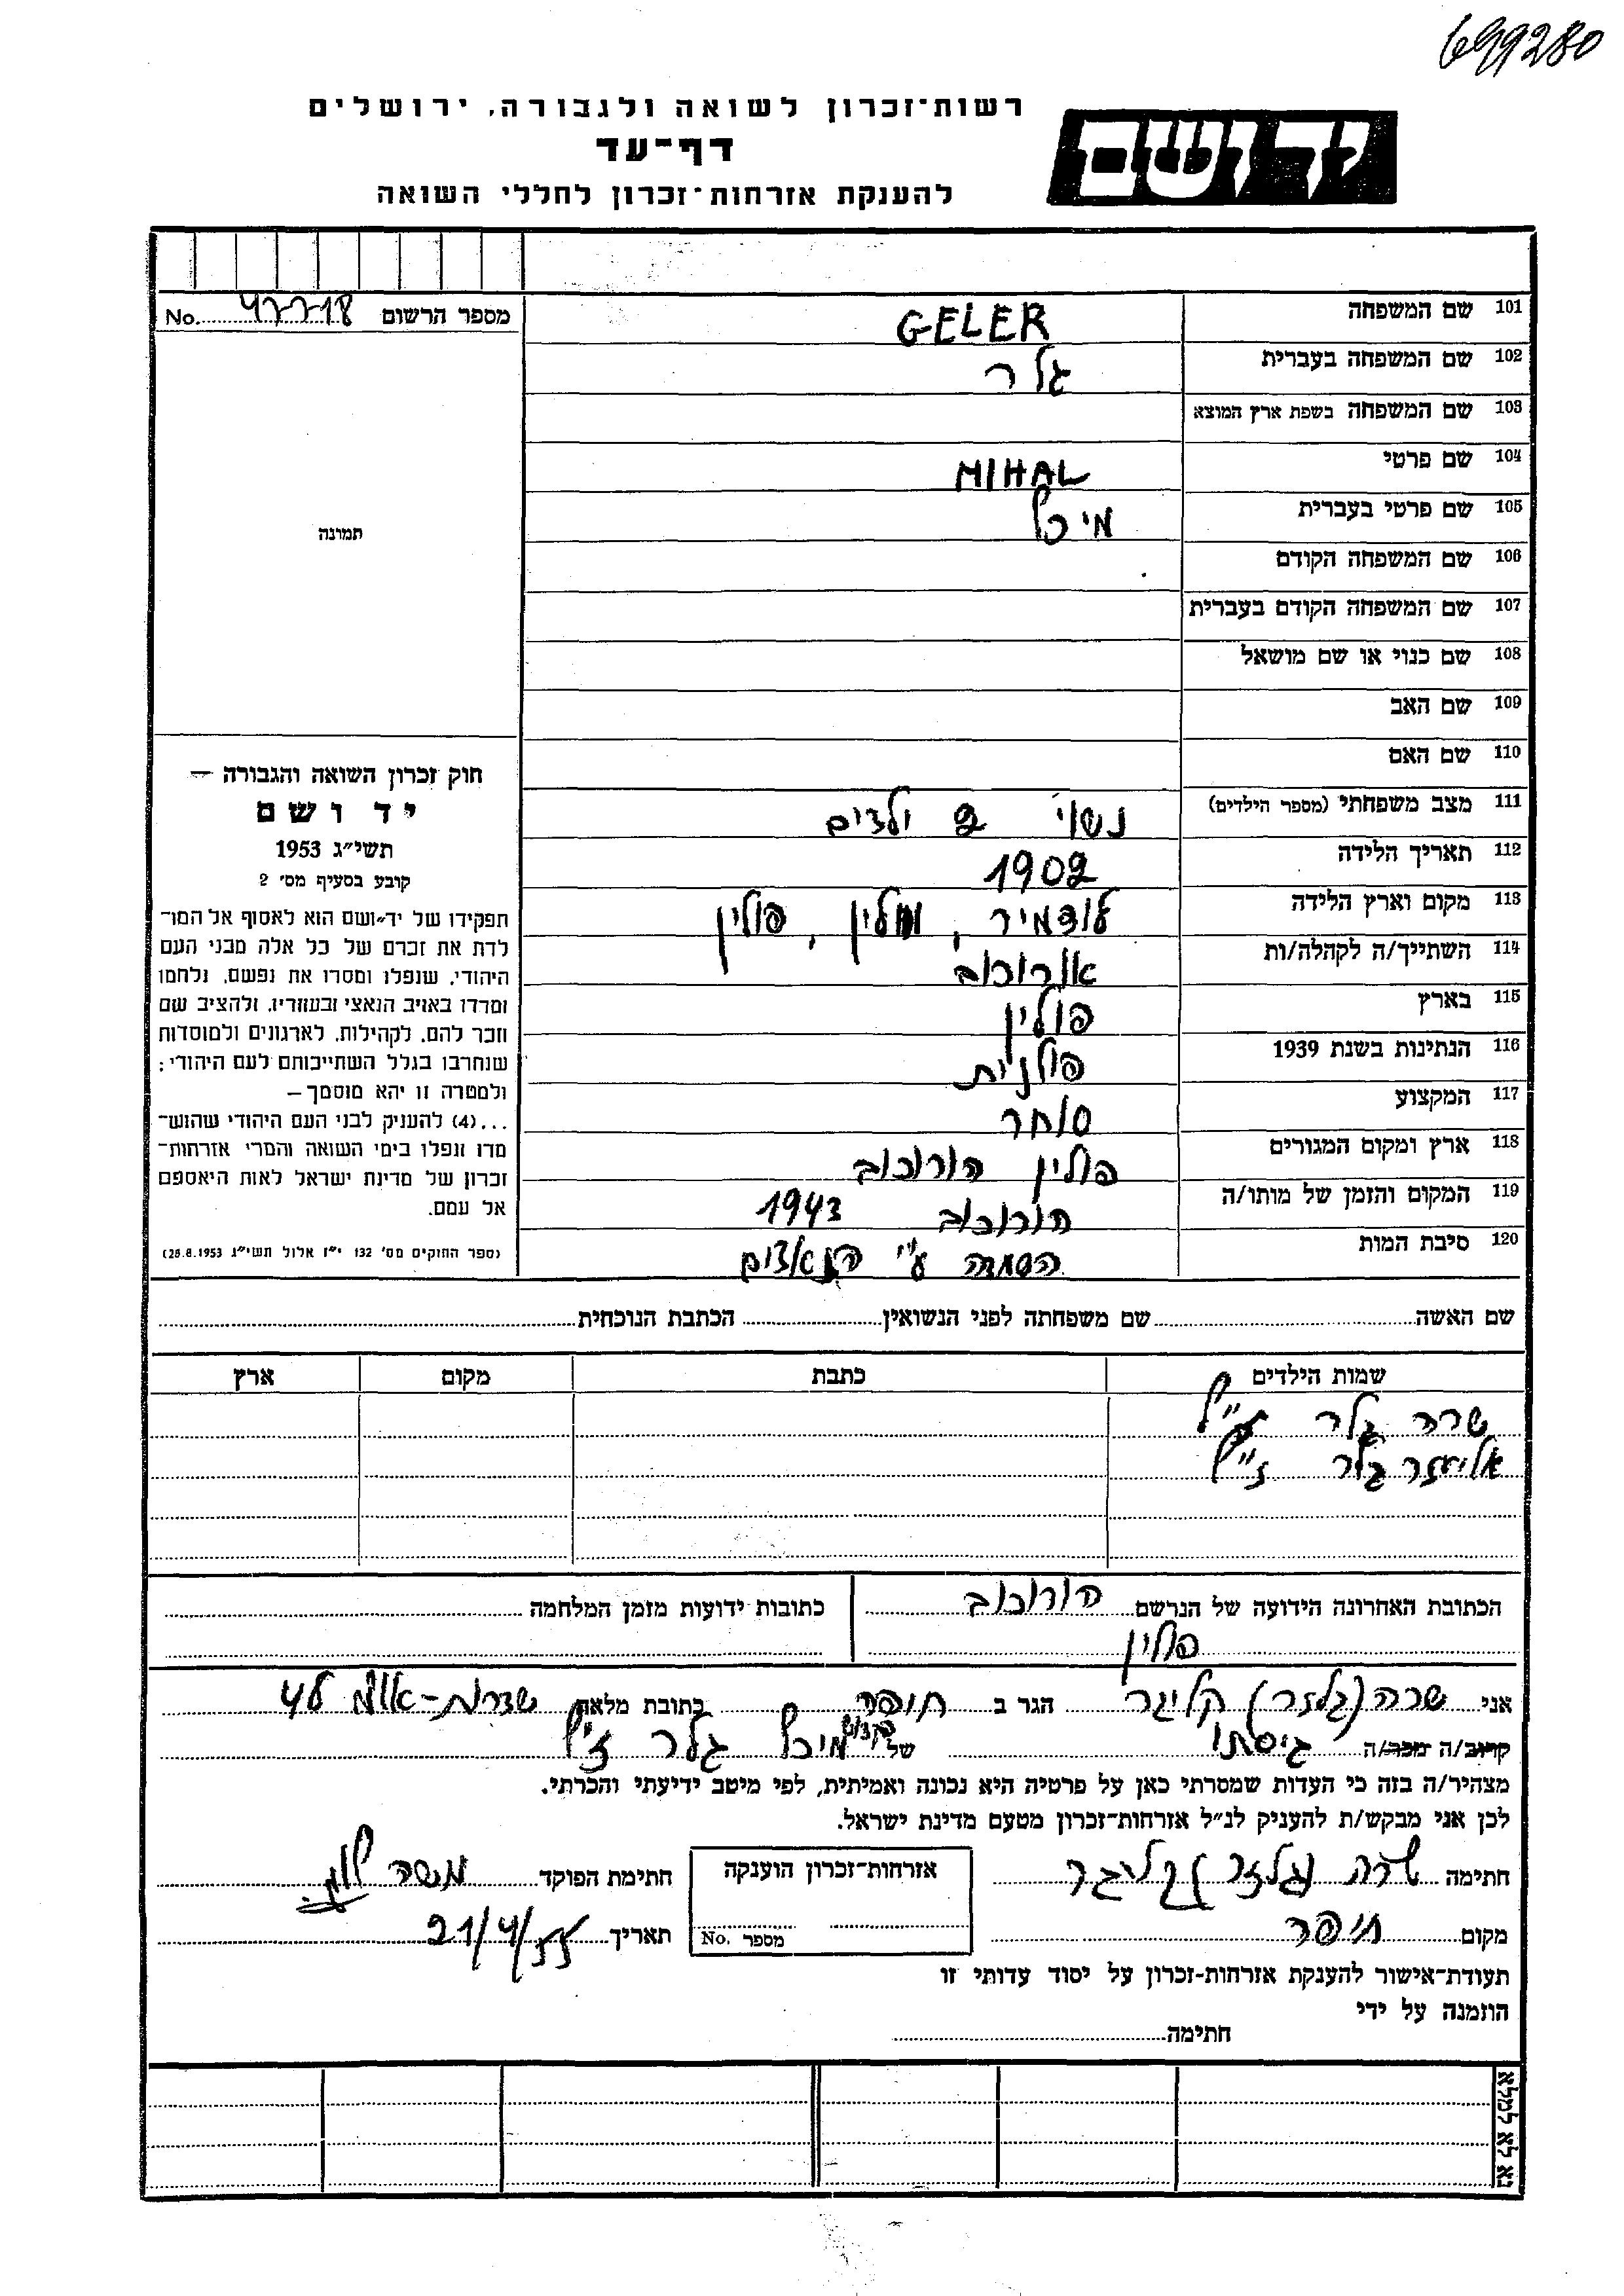 699280
רשות-זכרון לשואה ולגבורה, ירושלים
דף-עד
להענקת אזרחות-זכרון לחללי השואה
יד ושם
מספר הרשום No.
101 שם המשפחה GELER
102 שם המשפחה בעברית גלר
103 שם המשפחה בשפת ארץ המוצא
104 שם פרטי MIHAL
105 שם פרטי בעברית מיכל
106 שם המשפחה הקודם
107 שם המשפחה הקודם בעברית
108 שם כנוי או שם מושאל
109 שם האב
110 שם האם
111 מצב משפחתי (מספר הילדים) נשוי 2 ילדים
112 תאריך הלידה 1902
113 מקום וארץ הלידה לודמיר, ווהלין, פולין
114 השתייך/ה לקהלה/ות
115 בארץ פולין
116 הנתינות בשנת 1939 פולנית
117 המקצוע סוחר
118 ארץ ומקום המגורים פולין הורוכוב
119 המקום והזמן של מותו/ה הורוכוב 1943
120 סיבת המות השמדה ע"י הנאצים
תמונה
חוק זכרון השואה והגבורה —
יד ושם
תשי״ג 1953
קובע בסעיף מס׳ 2
תפקידו של יד-ושם הוא לאסוף אל המו־
לדת את זכרם של כל אלה מבני העם
היהודי, שנפלו ומסרו את נפשם, נלחמו
ומרדו באויב הנאצי ובעוזריו, ולהציב שם
וזכר להם, לקהילות, לארגונים ולמוסדות
שנחרבו בגלל השתייכותם לעם היהודי;
ולמטרה זו יהא מוסמך —
...(4) להעניק לבני העם היהודי שהוש־
מדו ונפלו בימי השואה והמרי אזרחות־
זכרון של מדינת ישראל לאות היאספם
אל עמם.
(ספר החוקים מס׳ 132 י״ז אלול תשי״ג 28.8.1953)
שם האשה שם משפחתה לפני הנשואין הכתבת הנוכחית
שמות הילדים כתבת מקום ארץ
שרה גלר ז"ל
אליעזר גלר ז"ל
הכתובת האחרונה הידועה של הנרשם הורוכוב
פולין
כתובות ידועות מזמן המלחמה
אני שרה (גלזר) קליגר הגר ב חיפה כתובת מלאה
קרוב/ה מכר/ה גיסתו של מיכל גלר ז"ל
מצהיר/ה בזה כי העדות שמסרתי כאן על פרטיה היא נכונה ואמיתית, לפי מיטב ידיעתי והכרתי.
לכן אני מבקש/ת להעניק לנ״ל אזרחות-זכרון מטעם מדינת ישראל.
חתימה שרה (גלזר) קליגר
אזרחות-זכרון הוענקה
מספר No.
חתימת הפוקד משה
מקום חיפה
תאריך 21/4/55
תעודת-אישור להענקת אזרחות-זכרון על יסוד עדותי זו
הוזמנה על ידי
חתימה
נא לא למלא